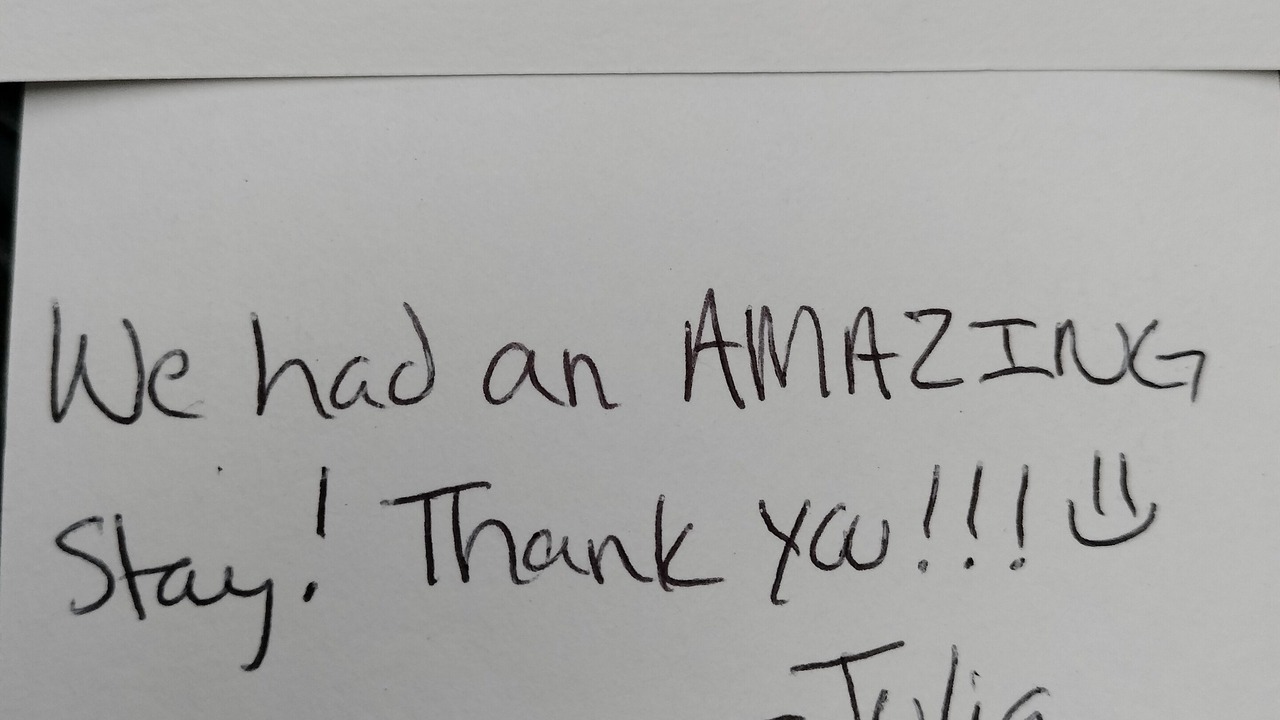 We had an AMAZING
Stay! Thank you!!! :)
- Julia